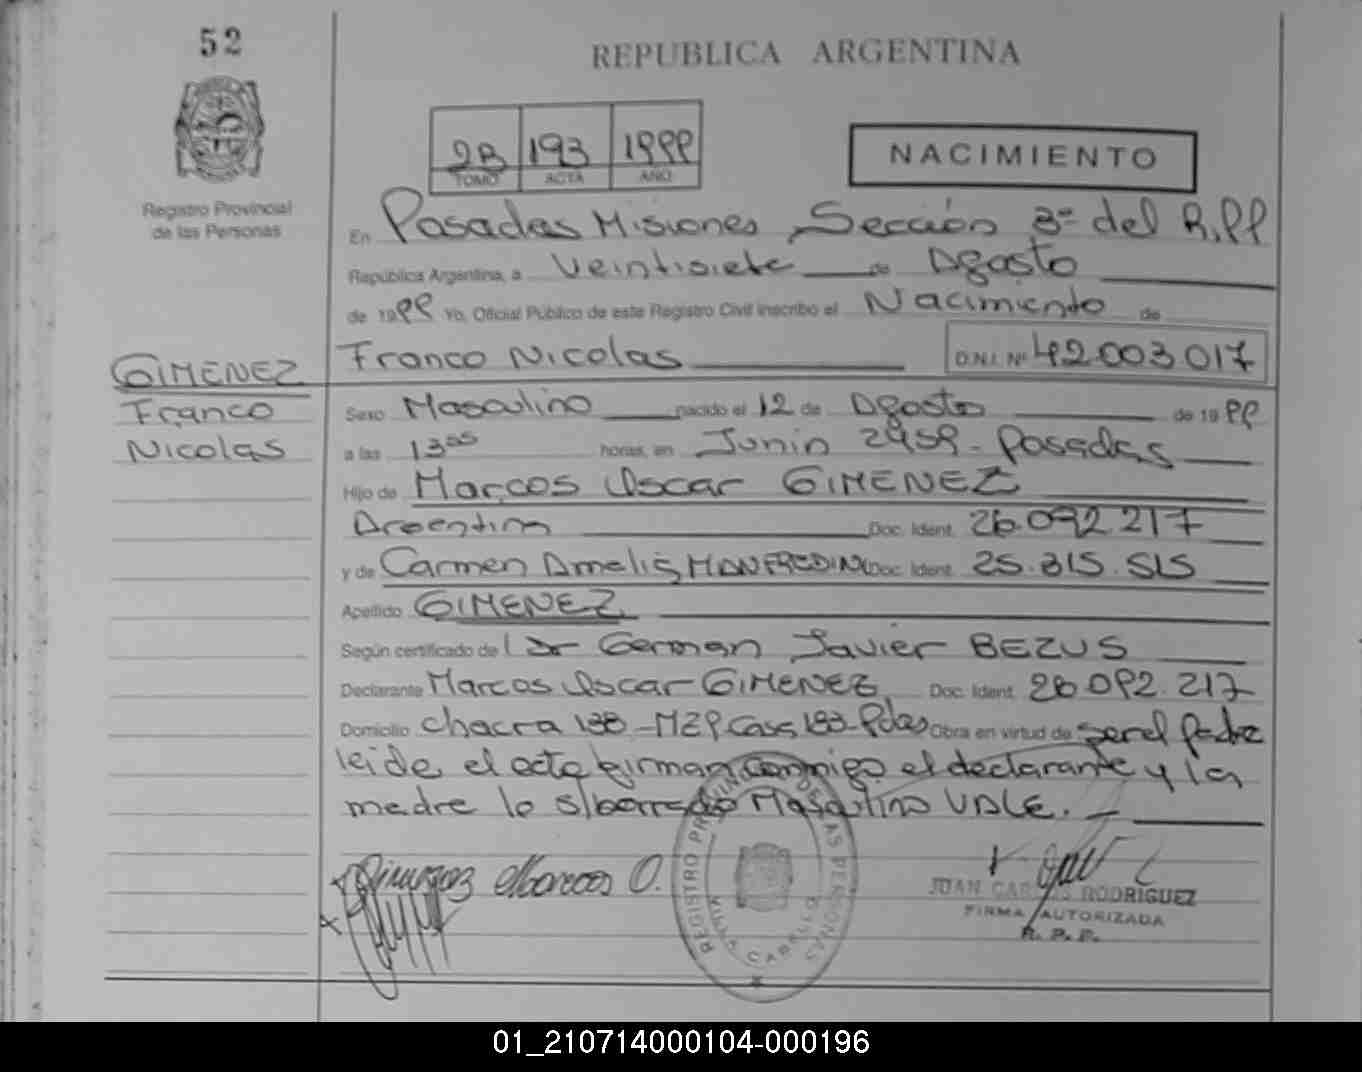 52
REPUBLICA ARGENTINA
2B 193 1999
TOMO ACTA AÑO
NACIMIENTO
Registro Provincial
de las Personas
En Posadas Misiones, Sección 3ª del R.PP
República Argentina, a Veintisiete de Agosto
de 1999 Yo, Oficial Público de este Registro Civil inscribo el Nacimiento de
Franco Nicolas D.N.I. Nº 42003017
GIMENEZ
Franco
Nicolas
Sexo Masculino nacido el 12 de Agosto de 1999
a las horas, en Junin 2959 - Posadas
Hijo de Marcos Oscar GIMENEZ
Argentina Doc. Ident. 26.092.217
y de Carmen Amelia MANFREDINI Doc. Ident. 25.315.515
Apellido GIMENEZ
Según certificado de Dr German Javier BEZUS
Declarante Marcos Oscar GIMENEZ Doc. Ident. 26.092.217
Domicilio chacra 138 - MZ P Casa 183 - Pdas Obra en virtud de ser el padre
leida el acta firman conmigo el declarante y la
madre lo s/borrado Masculino VALE. —
Gimenez Marcos O.
REGISTRO PROVINCIAL DE LAS PERSONAS
VILLA CABELLO
JUAN CARLOS RODRIGUEZ
FIRMA AUTORIZADA
R. P. P.
01_210714000104-000196